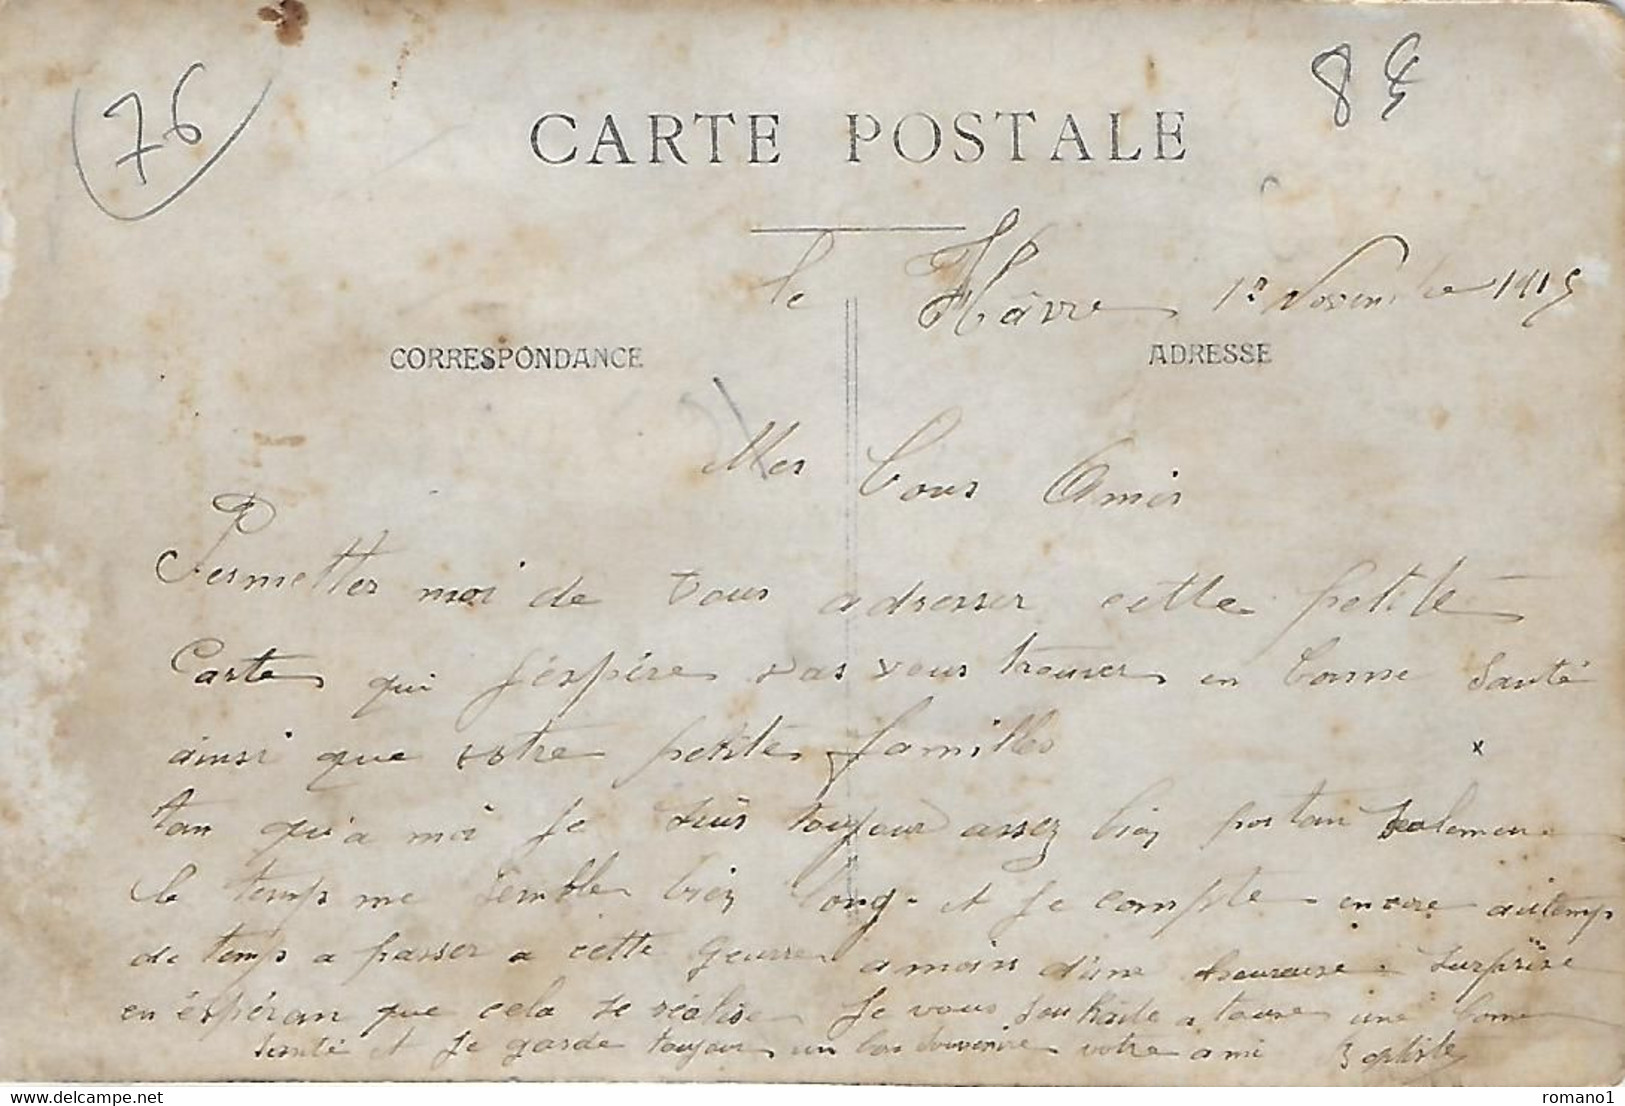 76
CARTE POSTALE
le Hâvre 1er Novembre 1915
CORRESPONDANCE
ADRESSE
Mes bons Amis
Permetter moi de vous adresser cette petite
Carte qui j'éspère vas vous trouver en bonne Santé
ainsi que votre petites familles
tan qu'a moi je suis toujour assez bien portan seulement
le temps me semble bien long et je compte encore autemps
de temps a passer a cette geurre a moins d'une heureuse surprise
en éspéran que cela se réalise Je vous souhaite a tous une bonne
santé et je garde toujour un bon souvenire votre ami Baptiste
romano1